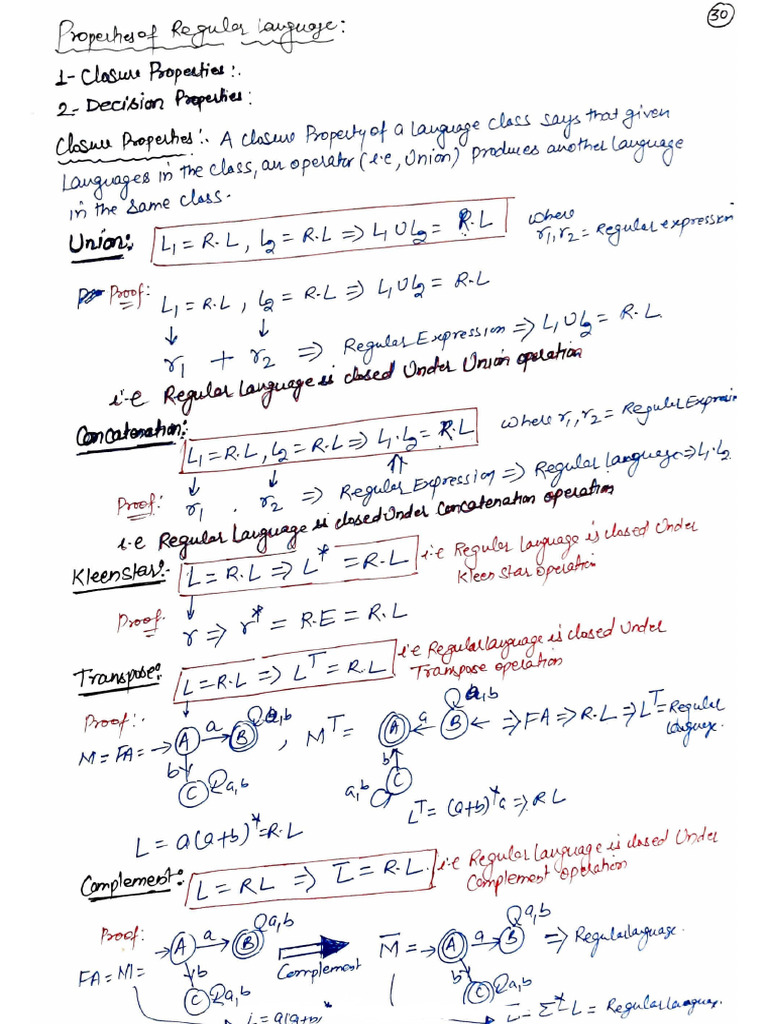 30
Properties of Regular language:
1- Closure Properties:.
2- Decision Properties:
Closure Properties:. A closure Property of a language class says that given
Languages in the class, an operator (i.e, Union) Produces another language
in the same class.
Union: L₁ = R.L, L₂ = R.L ⇒ L₁ U L₂ = R.L where
r₁, r₂ = Regular expression
Proof: L₁ = R.L, L₂ = R.L ⇒ L₁ U L₂ = R.L
↓ ↓
r₁ + r₂ ⇒ Regular Expression ⇒ L₁ U L₂ = R.L
i.e Regular Language is closed Under Union operation
Concatenation: L₁ = R.L, L₂ = R.L ⇒ L₁.L₂ = R.L where r₁, r₂ = Regular Expressi
↓ ↓ ⇑
Proof: r₁ . r₂ ⇒ Regular Expression ⇒ Regular Language ⇒ L₁.L₂
i.e Regular Language is closed Under Concatenation operation
Kleen Star:- L = R.L ⇒ L* = R.L i.e Regular Language is closed Under
Kleen Star operation
↓
Proof. r ⇒ r* = R.E = R.L
Transpose: L = R.L ⇒ Lᵀ = R.L i.e Regular language is closed Under
Transpose operation
↓
Proof:. M = FA = → A a B a,b , Mᵀ = A a B a,b ← ⇒ FA ⇒ R.L ⇒ Lᵀ = Regular
Language.
b C a,b b C a,b
L = a(a+b)* = R.L Lᵀ = (a+b)*a ⇒ RL
Complement: L = RL ⇒ L̅ = R.L. i.e Regular Language is closed Under
Complement operation
Proof: FA = M = → A a B a,b Complement M̅ = → A a B a,b ⇒ Regular language.
b C a,b b C a,b
L = a(a+b)* L̅ = Σ* - L = Regular Language.